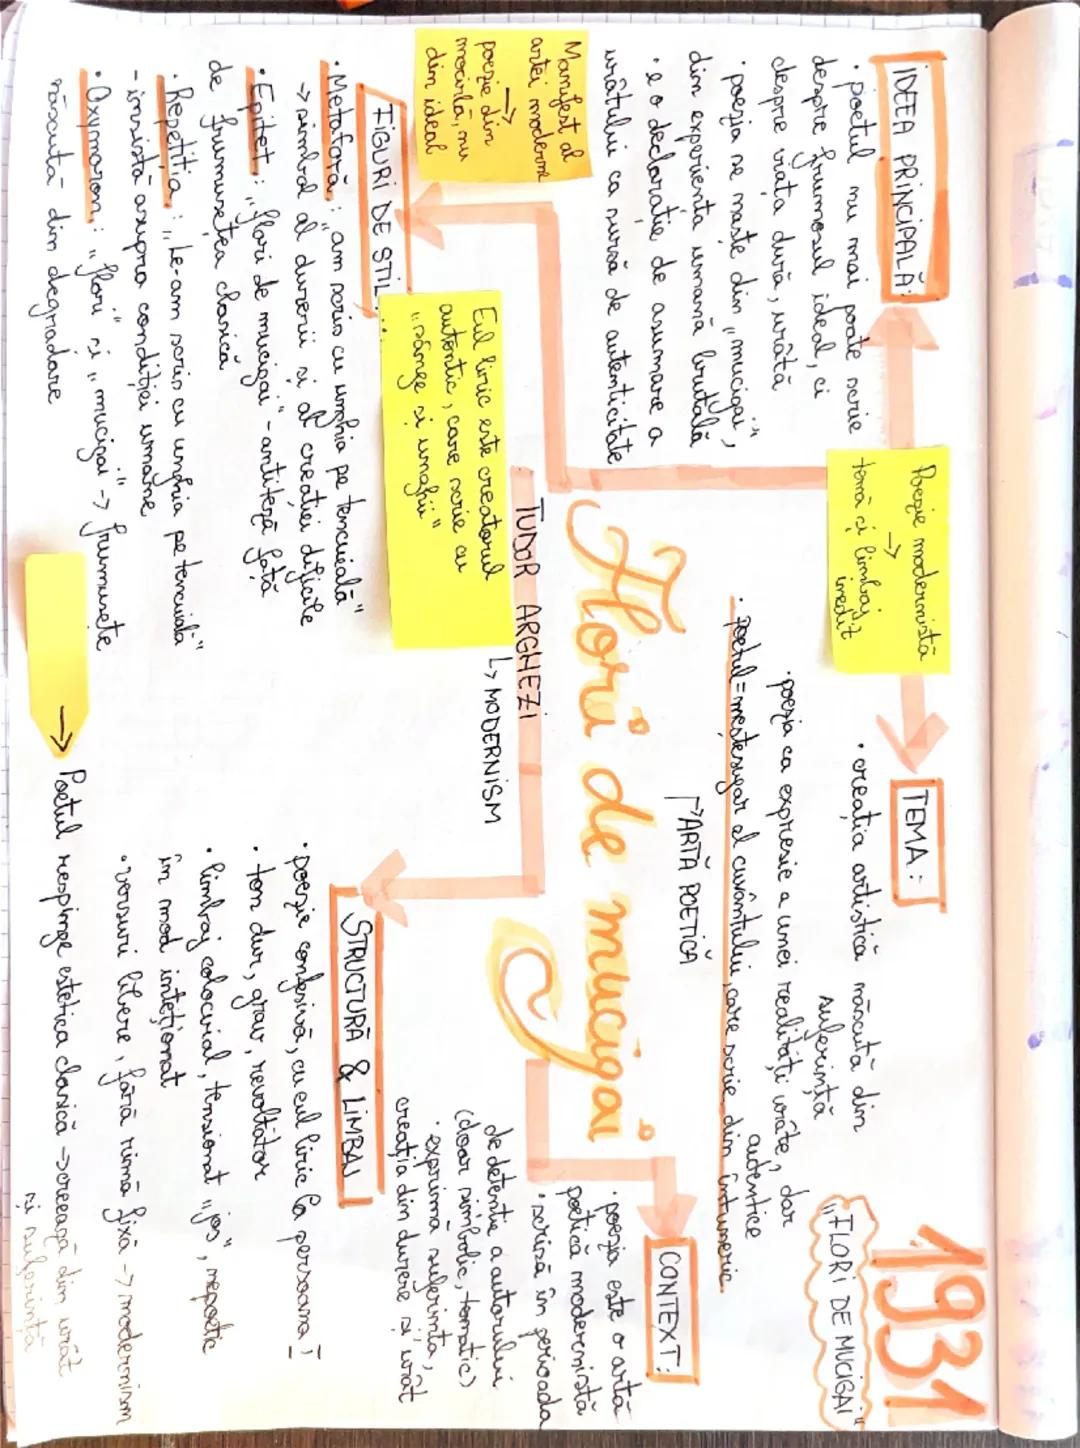 1931
"FLORI DE MUCIGAI"
IDEEA PRINCIPALĂ:
• poetul nu mai poate scrie
despre frumosul ideal, ci
despre viața dură, urâtă
• poezia se naște din "mucigai",
din experiența umană brutală
• e o declarație de asumare a
urâtului ca sursă de autenticitate
Poezie modernistă
→
temă și limbaj
inedit
TEMA:
• creația artistică născută din
suferință
• poezia ca expresie a unei realități urâte, dar
autentice
• poetul=meșteșugar al cuvântului, care scrie din întuneric
↱ARTĂ POETICĂ
Manifest al
artei moderne
→
poezie din
mocirlă, nu
din ideal
Flori de mucigai
TUDOR ARGHEZI
↳ MODERNISM
CONTEXT:
• poezia este o artă
poetică modernistă
• scrisă în perioada
de detenție a autorului
(doar simbolic, tematic)
• exprimă suferința,
creația din durere și urât
Eul liric este creatorul
autentic, care scrie cu
"sânge și unghii"
FIGURI DE STIL:
• Metaforă: "am scris cu unghia pe tencuială"
→ simbol al durerii și al creației dificile
• Epitet: "flori de mucigai" - antiteză față
de frumusețea clasică
• Repetiția: "Le-am scris cu unghia pe tencuială"
- insistă asupra condiției umane
• Oxymoron: "flori" și "mucigai" → frumusețe
născută din degradare
STRUCTURĂ & LIMBAJ
• poezie confesivă, cu eul liric la persoana I
• ton dur, grav, revoltător
• limbaj colocvial, tensionat "jos", nepoetic
în mod intețional
• versuri libere, fără rimă fixă → modernism
→ Poetul respinge estetica clasică → creează din urât
și suferință